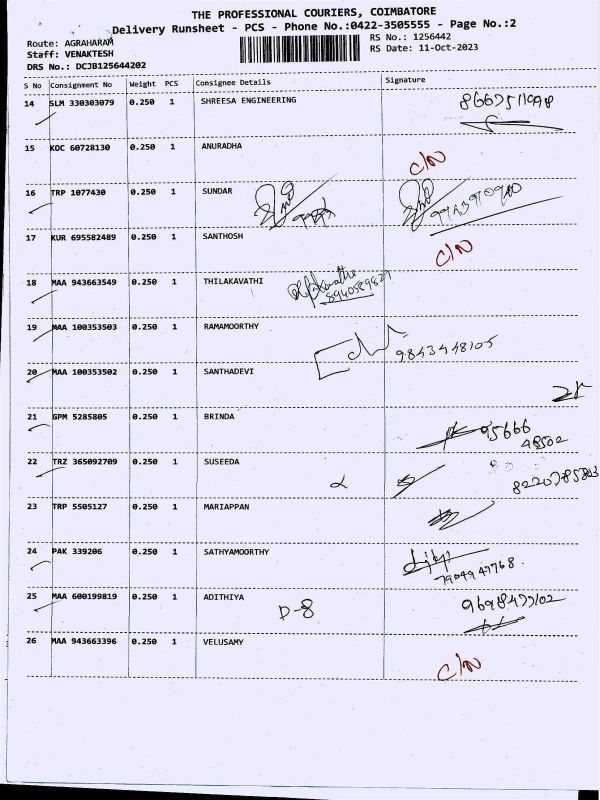 THE PROFESSIONAL COURIERS, COIMBATORE
Delivery Runsheet - PCS - Phone No.:0422-3505555 - Page No.:2
Route: AGRAHARAM
RS No.: 1256442
Staff: VENAKTESH
RS Date: 11-Oct-2023
DRS No.: DCJB125644202
S No Consignment No Weight PCS Consignee Details Signature
14 SLM 330303079 0.250 1 SHREESA ENGINEERING
15 KOC 60728130 0.250 1 ANURADHA C/N
16 TRP 1077430 0.250 1 SUNDAR
17 KUR 695582489 0.250 1 SANTHOSH C/N
18 MAA 943663549 0.250 1 THILAKAVATHI
8940589829
19 MAA 100353503 0.250 1 RAMAMOORTHY
9843448105
20 MAA 100353502 0.250 1 SANTHADEVI
21 GPM 5285805 0.250 1 BRINDA 95666
48502
22 TRZ 365092709 0.250 1 SUSEEDA
23 TRP 5505127 0.250 1 MARIAPPAN
24 PAK 339206 0.250 1 SATHYAMOORTHY
7904947768
25 MAA 600199819 0.250 1 ADITHIYA D-8
26 MAA 943663396 0.250 1 VELUSAMY C/N